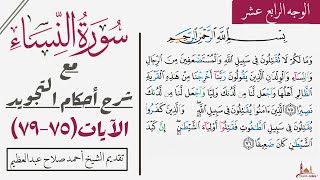 الوجه الرابع عشر
سُورَةُ النِّسَاءِ
مع
شرح أحكام التجويد
الآيات (٧٥-٧٩)
تقديم الشيخ أحمد صلاح عبدالعظيم
بِسْمِ اللَّهِ الرَّحْمَٰنِ الرَّحِيمِ
وَمَا لَكُمْ لَا تُقَٰتِلُونَ فِي سَبِيلِ اللَّهِ وَالْمُسْتَضْعَفِينَ مِنَ الرِّجَالِ
وَالنِّسَاءِ وَالْوِلْدَٰنِ الَّذِينَ يَقُولُونَ رَبَّنَا أَخْرِجْنَا مِنْ هَٰذِهِ الْقَرْيَةِ
الظَّالِمِ أَهْلُهَا وَاجْعَل لَّنَا مِن لَّدُنكَ وَلِيًّا وَاجْعَل لَّنَا مِن لَّدُنكَ
نَصِيرًا ٧٥ الَّذِينَ ءَامَنُوا يُقَٰتِلُونَ فِي سَبِيلِ اللَّهِ وَالَّذِينَ كَفَرُوا
يُقَٰتِلُونَ فِي سَبِيلِ الطَّٰغُوتِ فَقَٰتِلُوا أَوْلِيَاءَ الشَّيْطَٰنِ إِنَّ كَيْدَ
الشَّيْطَٰنِ كَانَ ضَعِيفًا ٧٦